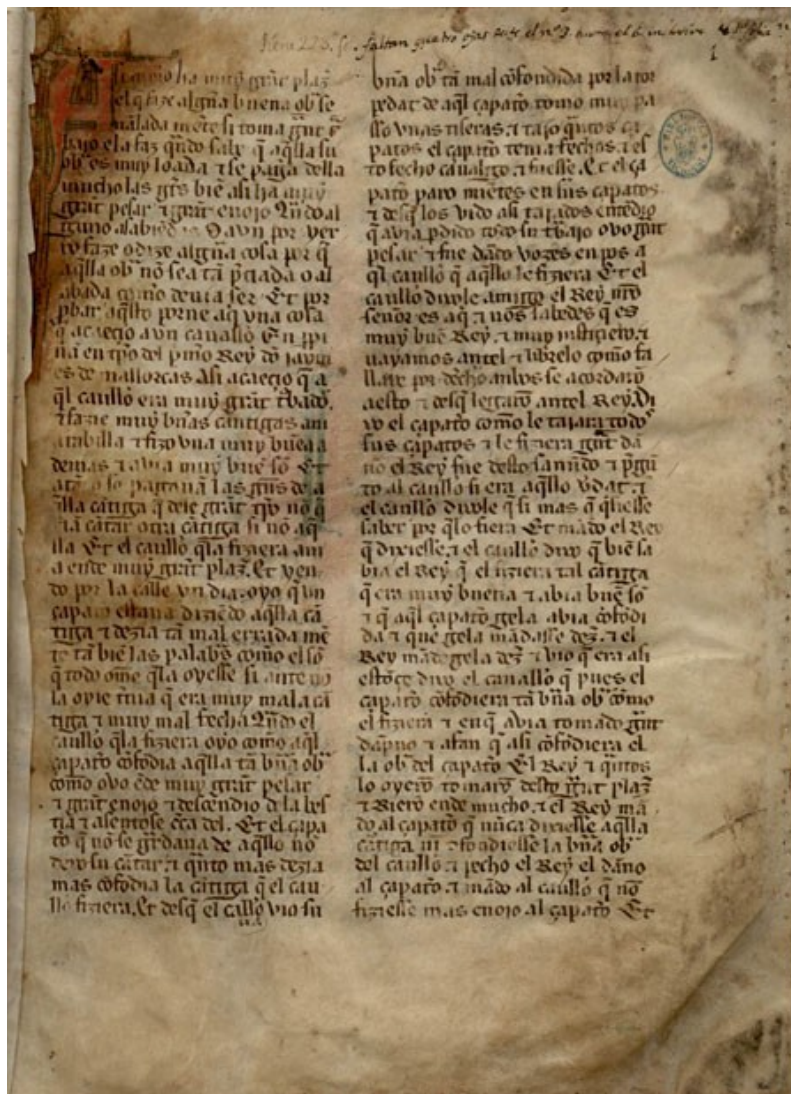 faltan quatro ojas
1
Asi como ha muy grãt plaz̃
el q̃ faze algũa buena ob̃ se
nalada mẽte si toma grãt t̃
bajo ẽla faz q̃ndo sabe q̃ aq̃lla su
ob̃ es muy loada ⁊ se paga della
mucho las gẽs biẽ asi ha muy
grãt pesar ⁊ grãt enojo q̃ndo al
guno a sabiẽdas o avn por yer
ro faze o dize algũa cosa por q̃
aq̃lla ob̃ nõ sea tã p̃ciada o al
abada como deuia ser Et por
ꝓbar aq̃sto porne aq̃ vna cosa
q̃ acaecio a vn cauallõ En ꝑpi
ñã en tp̃o del p̃mo Rey dõ jaym
es de mallorcas Asi acaecio q̃ a
q̃l caullõ era muy grãt t̃bador
⁊ fazie muy bñas cantigas a m
arabilla ⁊ fizo vna muy buẽa a
demas ⁊ avia muy buẽ sõ Et
atã o se pagauã las gẽs de a
q̃lla cãtiga q̃ desde grãt tp̃o nõ q̃
riã cãtar otra cãtiga si nõ aq̃
lla Et el caullõ q̃ la fiziera aui
a ende muy grãt plaz̃. Et yen
do por la calle vn dia. oyo q̃ un
capatõ estaua diziẽdo aq̃lla cã
tiga ⁊ dezia tã mal errada mẽ
te tã biẽ las palabs̃ como el sõ
q̃ todo ome q̃ la oyesse si ante no
la oyie ternia q̃ era muy mala cã
tiga ⁊ muy mal fecha q̃ndo el
cauallõ q̃ la fiziera oyo como aq̃l
çapatõ cõfodia aq̃lla tã bñã ob̃
como ovo ẽde muy grãt pesar
⁊ grãt enojo ⁊ descendio d la bes
tia ⁊ asentose çeã del. Et el çapa
tõ q̃ nõ se gr̃daua de aq̃llo nõ
dexo su cãtar ⁊ q̃nto mas dezia
mas cõfodia la cãtiga q̃ el cau
llõ fiziera. Et desq̃ el callõ vio su
ua
bñã ob̃ tã mal cõfondida por la tor
pedat de aq̃l çapatõ tomo muy pa
sso vnas tiseras ⁊ tajo q̃ntos ça
patos el çapatõ tenia fechos ⁊ es
to fecho caualgo ⁊ fuesse. Et el ça
patõ paro miẽtes en sus çapatos
⁊ desq̃ los vido asi tajados entẽdio
q̃ avia ꝑdido todo su t̃bajo ovo grãt
pesar ⁊ fue dãdo vozes en pos a
q̃l caullõ q̃ aq̃llo le fiziera Et el
caullõ dixole amigo el Rey nr̃o
señor es aq̃ ⁊ vos sabedes q̃ es
muy buẽ Rey. ⁊ muy justiciero ⁊
vayamos antel ⁊ librelo como fa
llare por d̃echo anbos se acordarõ
a esto ⁊ desq̃ legarõ antel Rey. Di
xo el çapatõ como le tajara todos
sus çapatos ⁊ le fiziera grãt dã
no el Rey fue desto sanudo ⁊ p̃gũ
to al caullõ si era aq̃llo ṽdat ⁊
el cauallõ dixole q̃ si mas q̃ q̃siesse
saber por q̃ lo fiera Et mãdo el Rey
q̃ dixiesse. ⁊ el cauallõ dixo q̃ biẽ sa
bia el Rey q̃ el fiziera tal cãtiga
q̃ era muy buena ⁊ abia buẽ sõ
⁊ q̃ aq̃l çapatõ gela abia cõfodi
da ⁊ que gela mãdasse dez̃ ⁊ el
Rey mãdogela dez̃ ⁊ vio q̃ era asi
estõçe dixo el cauallõ q̃ pues el
çapatõ cõfodiera tã bñã ob̃ como
el fiziera ⁊ en q̃ avia tomado grãt
dãpno ⁊ afan q̃ asi cõfodiera el
la ob̃ del çapatõ El Rey ⁊ q̃ntos
lo oyerõ tomarõ desto grãt plaz̃
⁊ Rierõ ende mucho. ⁊ el Rey mã
do al çapatõ q̃ nũca dixiesse aq̃lla
cãtiga ni cõfondiesse la bñã ob̃
del caullõ ⁊ pecho el Rey el dãno
al çapatõ ⁊ mãdo al caullõ q̃ nõ
fiziesse mas enojo al çapatõ Et